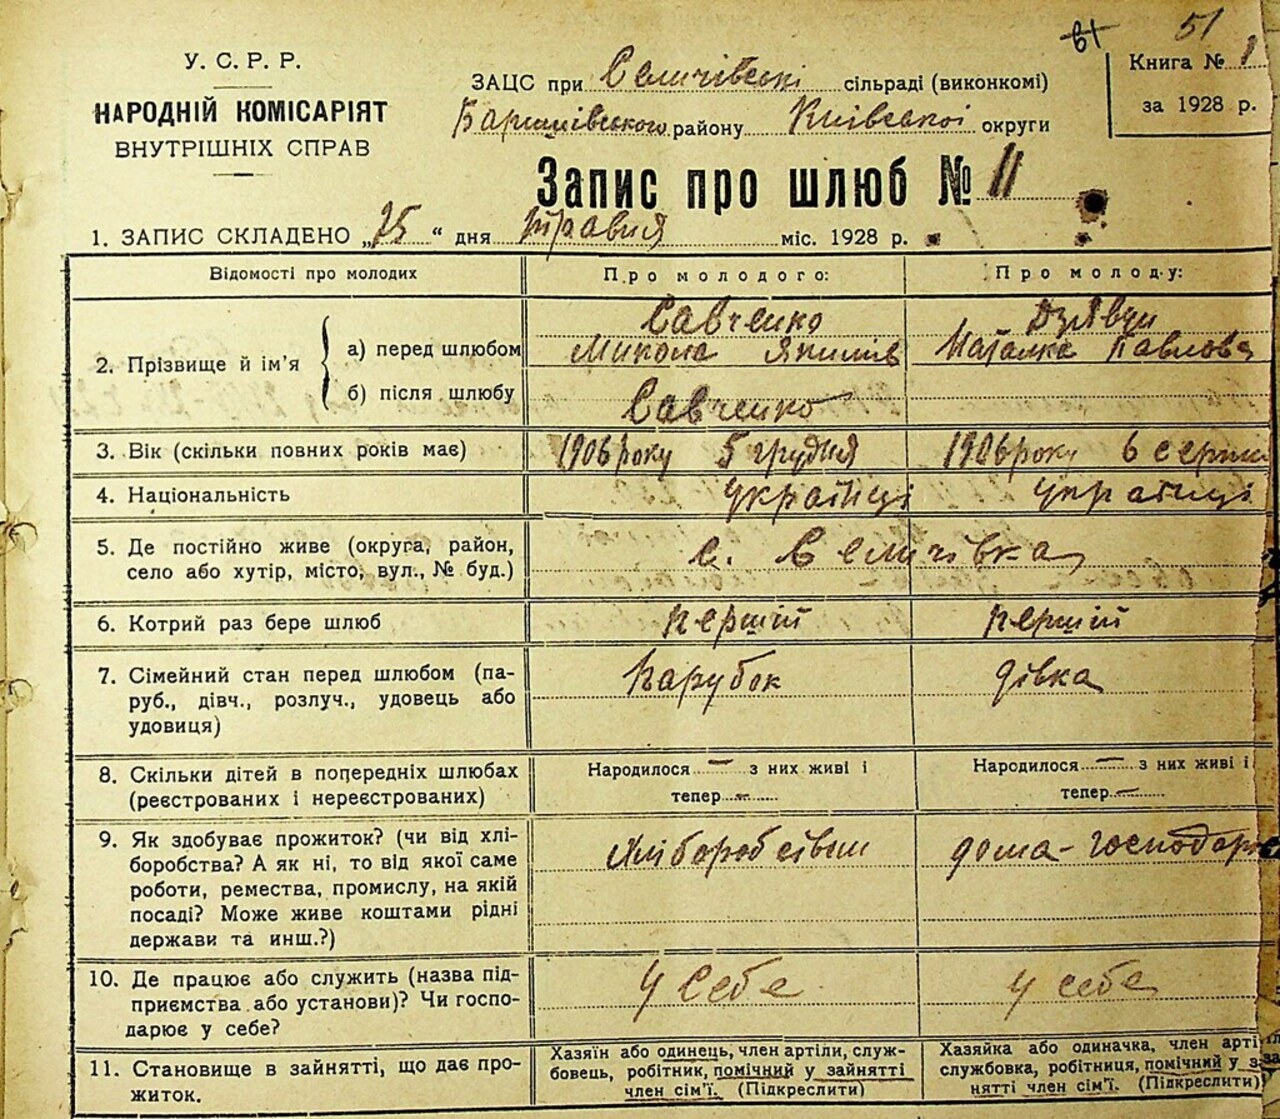 51
У. С. Р. Р.
НАРОДНІЙ КОМІСАРІЯТ
ВНУТРІШНІХ СПРАВ
ЗАЦС при Селичівські сільраді (виконкомі)
Баришівського району Київської округи
Книга № 1
за 1928 р.
Запис про шлюб № 11
1. ЗАПИС СКЛАДЕНО „25“ дня травня міс. 1928 р.
Відомості про молодих
Про молодого:
Про молоду:
2. Прізвище й ім’я
а) перед шлюбом
Савченко
Микола Якимів
Наталка Павлова
б) після шлюбу
Савченко
3. Вік (скільки повних років має)
1906 року 5 грудня
1906 року 6 серпня
4. Національність
Українці
Українці
5. Де постійно живе (округа, район,
село або хутір, місто, вул., № буд.)
с. Селичівка
6. Котрий раз бере шлюб
перший
перший
7. Сімейний стан перед шлюбом (па-
руб., дівч., розлуч., удовець або
удовиця)
Парубок
дівка
8. Скільки дітей в попередніх шлюбах
(реєстрованих і нереєстрованих)
Народилося — з них живі і
тепер —
Народилося — з них живі і
тепер —
9. Як здобуває прожиток? (чи від хлі-
боробства? А як ні, то від якої саме
роботи, ремества, промислу, на якій
посаді? Може живе коштами рідні
держави та инш.?)
Хліборобсівом
дома-господар
10. Де працює або служить (назва під-
приємства або установи)? Чи госпо-
дарює у себе?
У себе
У себе
11. Становище в зайнятті, що дає про-
житок.
Хазяїн або одинець, член артіли, служ-
бовець, робітник, помічний у зайнятті
член сім’ї. (Підкреслити)
Хазяйка або одиначка, член арті
службовка, робітниця, помічний у за
нятті член сім’ї. (Підкреслити)